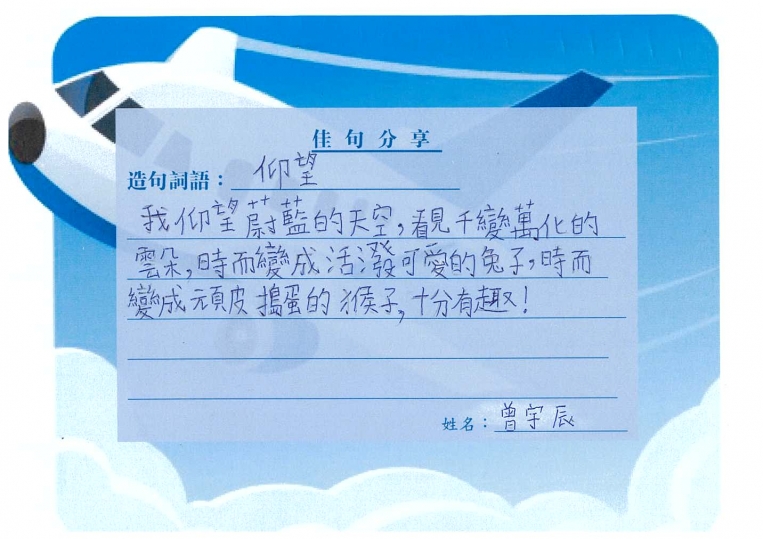 佳句分享
造句詞語：仰望
我仰望蔚藍的天空，看見千變萬化的
雲朵，時而變成活潑可愛的兔子，時而
變成頑皮搗蛋的猴子，十分有趣！
姓名：曾宇辰